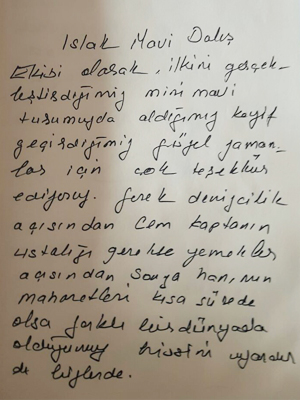 Islak Mavi Dalış
Ekibi olarak, ilkini gerçek-
leştirdiğimiz mini mavi
turumuzda aldığımız keyif
geçirdiğimiz güzel zaman-
lar için çok teşekkür
ediyoruz. Gerek denizcilik
açısından Cem kaptanın
ustalığı gerekse yemekler
açısından Songa hanımın
maharetleri kısa sürede
olsa farklı bir dünyada
olduğumuz hissini uyandır
dı bizlerde.